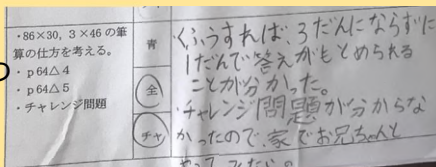 ・86×30, 3×46の筆
算の仕方を考える。
・p64△4
・p64△5
・チャレンジ問題
青
全
チャ
くふうすれば、3だんにならずに
1だんで答えがもとめられる
ことが分かった。
・チャレンジ問題が分からな
かったので、家でお兄ちゃんと